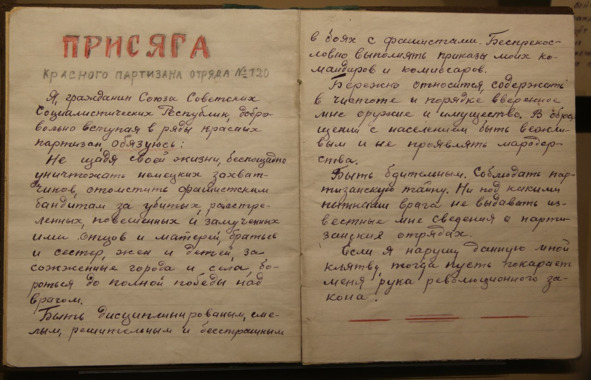 ПРИСЯГА
КРАСНОГО ПАРТИЗАНА ОТРЯДА №120
Я, гражданин Союза Советских
Социалистических Республик, добро-
вольно вступая в ряды красных
партизан, обязуюсь:
Не щадя своей жизни, беспощадно
уничтожать немецких захват-
чиков, отомстить фашистским
бандитам за убитых, расстре-
ленных, повешенных и замученных
ими отцов и матерей, братьев
и сестер, жен и детей, за
сожженные города и села, бо-
роться до полной победы над
врагом.
Быть дисциплинированым, сме-
лым, решительным и бесстрашным
в боях с фашистами. Беспрекос-
ловно выполнять приказы моих ко-
мандиров и комиссаров.
Бережно относится, содержать
в чистоте и порядке вверенное
мне оружие и имущество. В обра-
щении с населением быть вежли-
вым и не проявлять мародер-
ства.
Быть бдительным. Соблюдать пар-
тизанскую тайну. Ни под какими
пытками врага не выдавать из-
вестные мне сведения о парти-
занских отрядах.
Если я нарушу данную мной
клятву, тогда пусть покарает
меня рука революционного за-
кона!